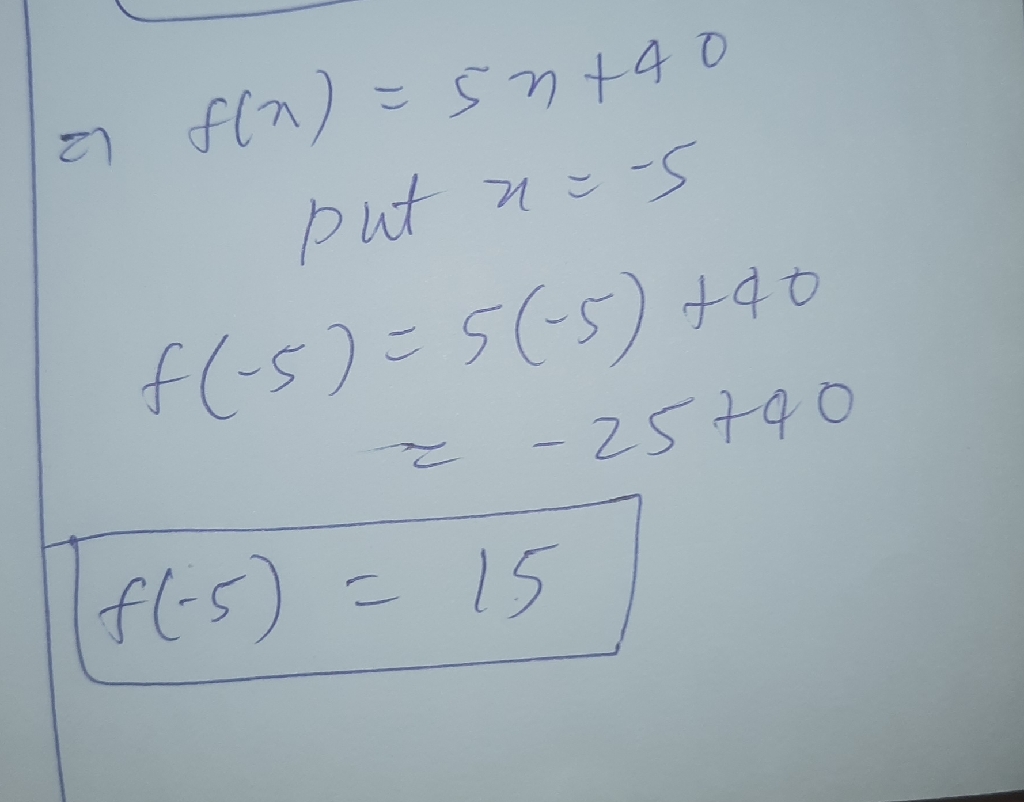 => f(x) = 5x+40
put x = -5
f(-5) = 5(-5) +40
= -25+40
f(-5) = 15